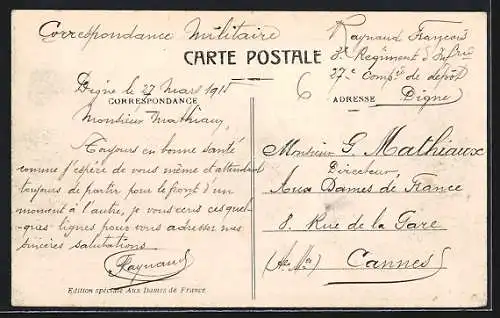 Correspondance Militaire
Raynaud François
3e Régiment d'Infrie
27e Compie de dépôt
Digne
CARTE POSTALE
6
CORRESPONDANCE
ADRESSE
Digne le 27 Mars 1915
Monsieur Mathiaux,
Toujours en bonne santé
comme j'espère de vous même et attendant
toujours de partir pour le front d'un
moment à l'autre, je vous envoi ces quel-
ques lignes pour vous adresser mes
sincères salutations
Raynaud
Monsieur G. Mathiaux
Directeur
Aux Dames de France
8. Rue de la Gare
(Alp. Mes) Cannes
Edition spéciale Aux Dames de France